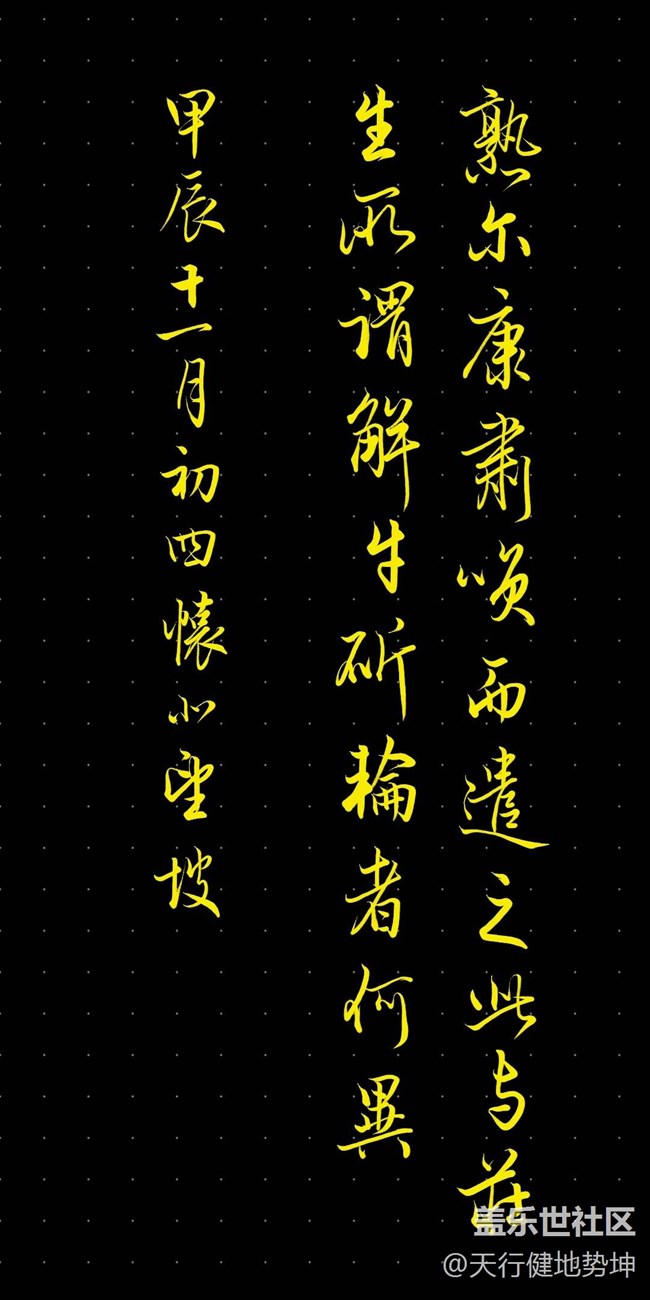 熟尔康肃唉而遣之此与莊
生所谓解牛斫輪者何異
甲辰十一月初四懐小望坡
盖乐世社区
@天行健地势坤